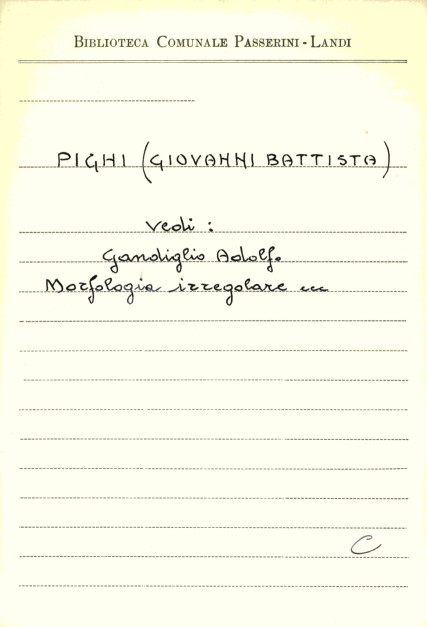 BIBLIOTECA COMUNALE PASSERINI - LANDI
PIGHI (GIOVANNI BATTISTA)
Vedi :
Gandiglio Adolf.
Morfologia irregolare ...
C